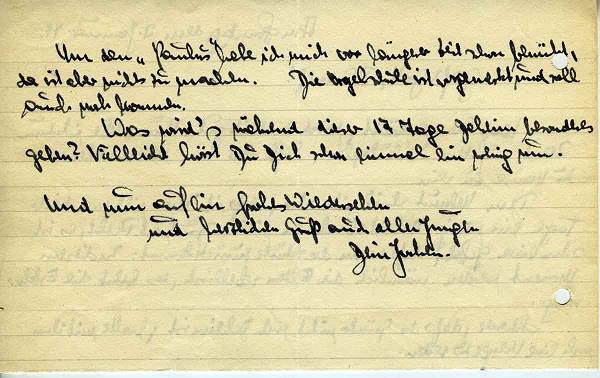 Um den „Paulus" habe ich mich vor länger Zeit schon bemüht,
da ist aber nichts zu machen. Die Orgelschule ist vorgemerkt und soll
auch noch kommen.
Was wird's während dieser 17 Tage Ferien besonderes
geben? Vielleicht hörst Du Dich schon einmal ein wenig um.
Und nun auf ein frohes Wiedersehen
und herzlichen Gruß auch allen Jungen
Dein